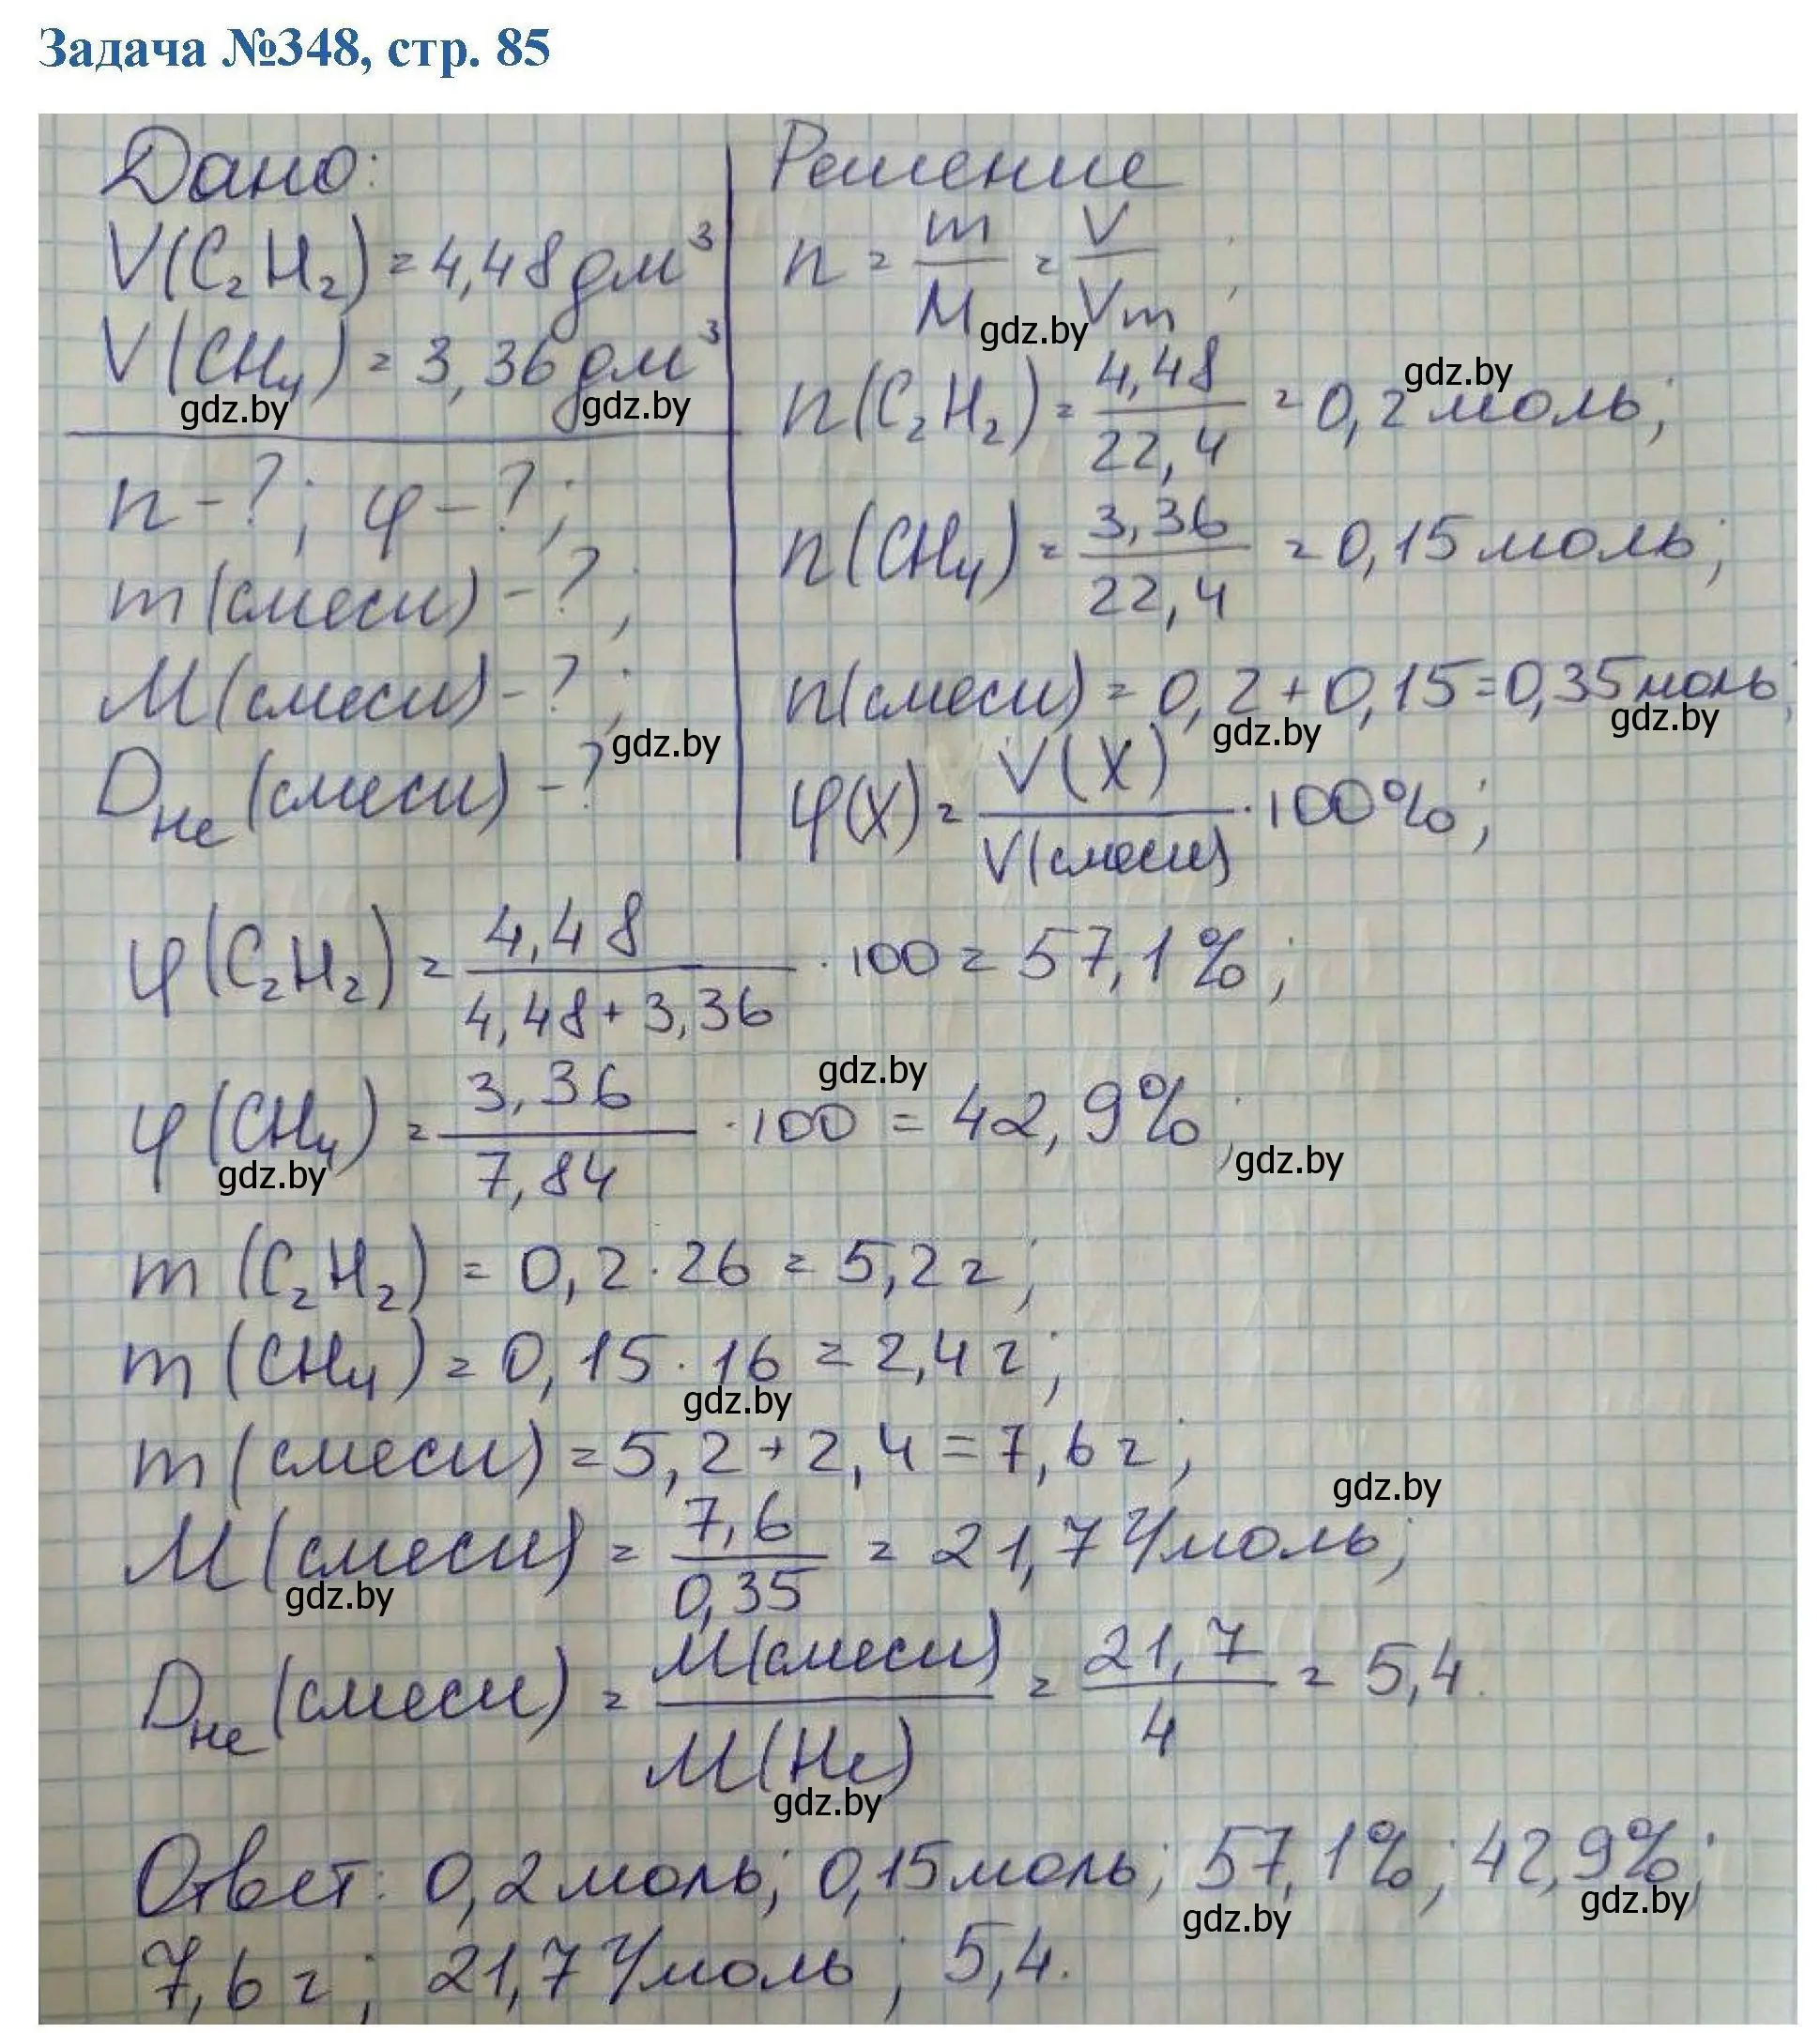 Задача №348, стр. 85
Дано:
V(C₂H₂) = 4,48 дм³
V(CH₄) = 3,36 дм³
gdz.by gdz.by
n - ?; φ - ?;
m(смеси) - ?;
M(смеси) - ?;
gdz.by
D_He(смеси) - ?
Решение
n = m/M = V/Vm;
gdz.by
gdz.by
n(C₂H₂) = 4,48/22,4 = 0,2 моль;
n(CH₄) = 3,36/22,4 = 0,15 моль;
n(смеси) = 0,2 + 0,15 = 0,35 моль;
gdz.by gdz.by
φ(X) = V(X)/V(смеси) · 100%;
φ(C₂H₂) = 4,48/(4,48 + 3,36) · 100 = 57,1%;
gdz.by
φ(CH₄) = 3,36/7,84 · 100 = 42,9%;
gdz.by gdz.by
m(C₂H₂) = 0,2 · 26 = 5,2 г;
m(CH₄) = 0,15 · 16 = 2,4 г;
gdz.by
m(смеси) = 5,2 + 2,4 = 7,6 г;
gdz.by
M(смеси) = 7,6/0,35 = 21,7 г/моль;
gdz.by
D_He(смеси) = M(смеси)/M(He) = 21,7/4 = 5,4.
gdz.by
Ответ: 0,2 моль; 0,15 моль; 57,1%; 42,9%;
gdz.by gdz.by
7,6 г; 21,7 г/моль; 5,4.